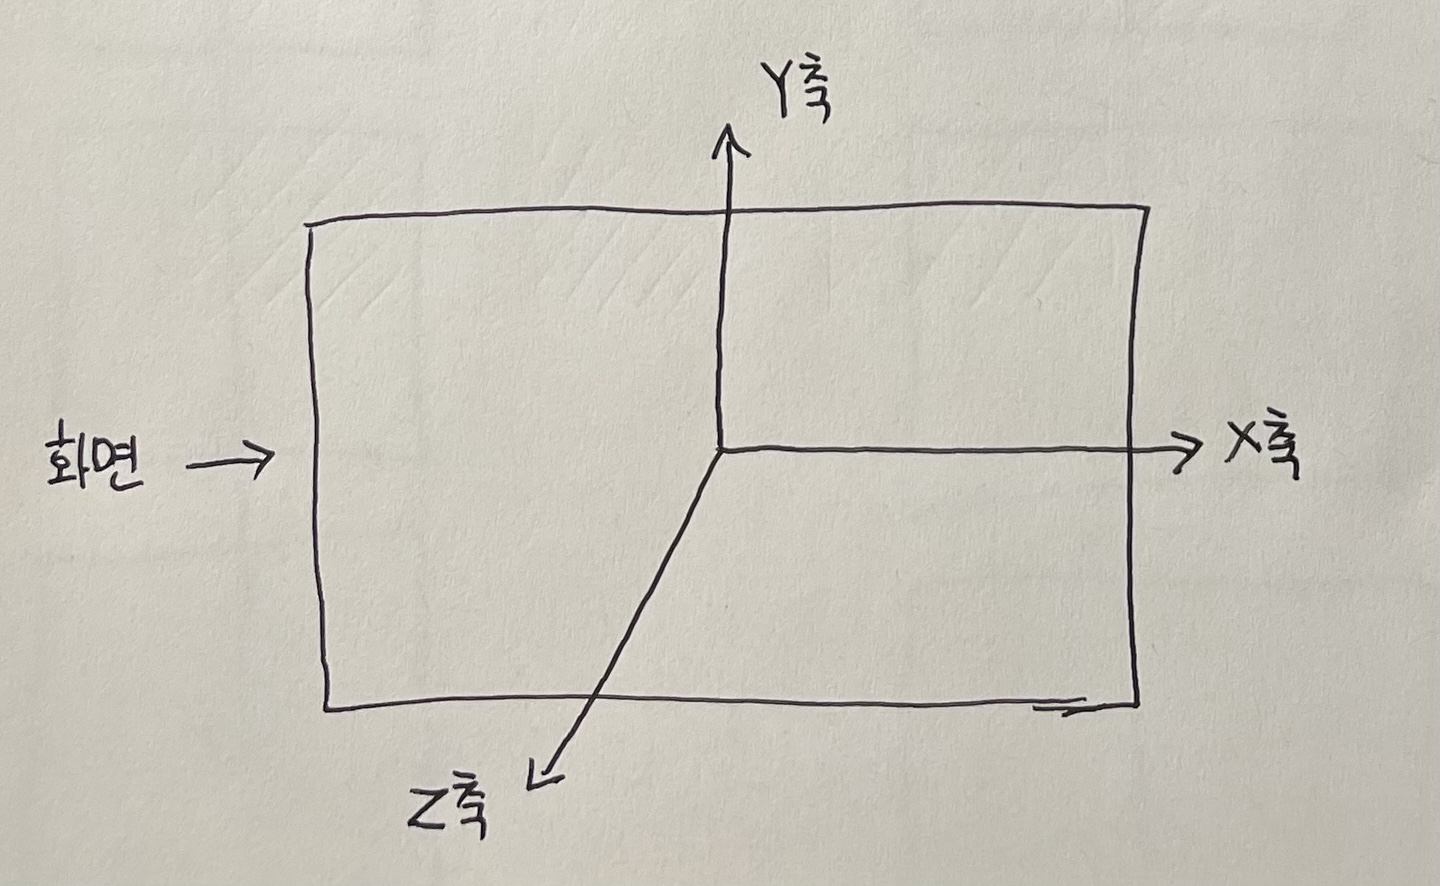 Y축
화면
X축
Z축